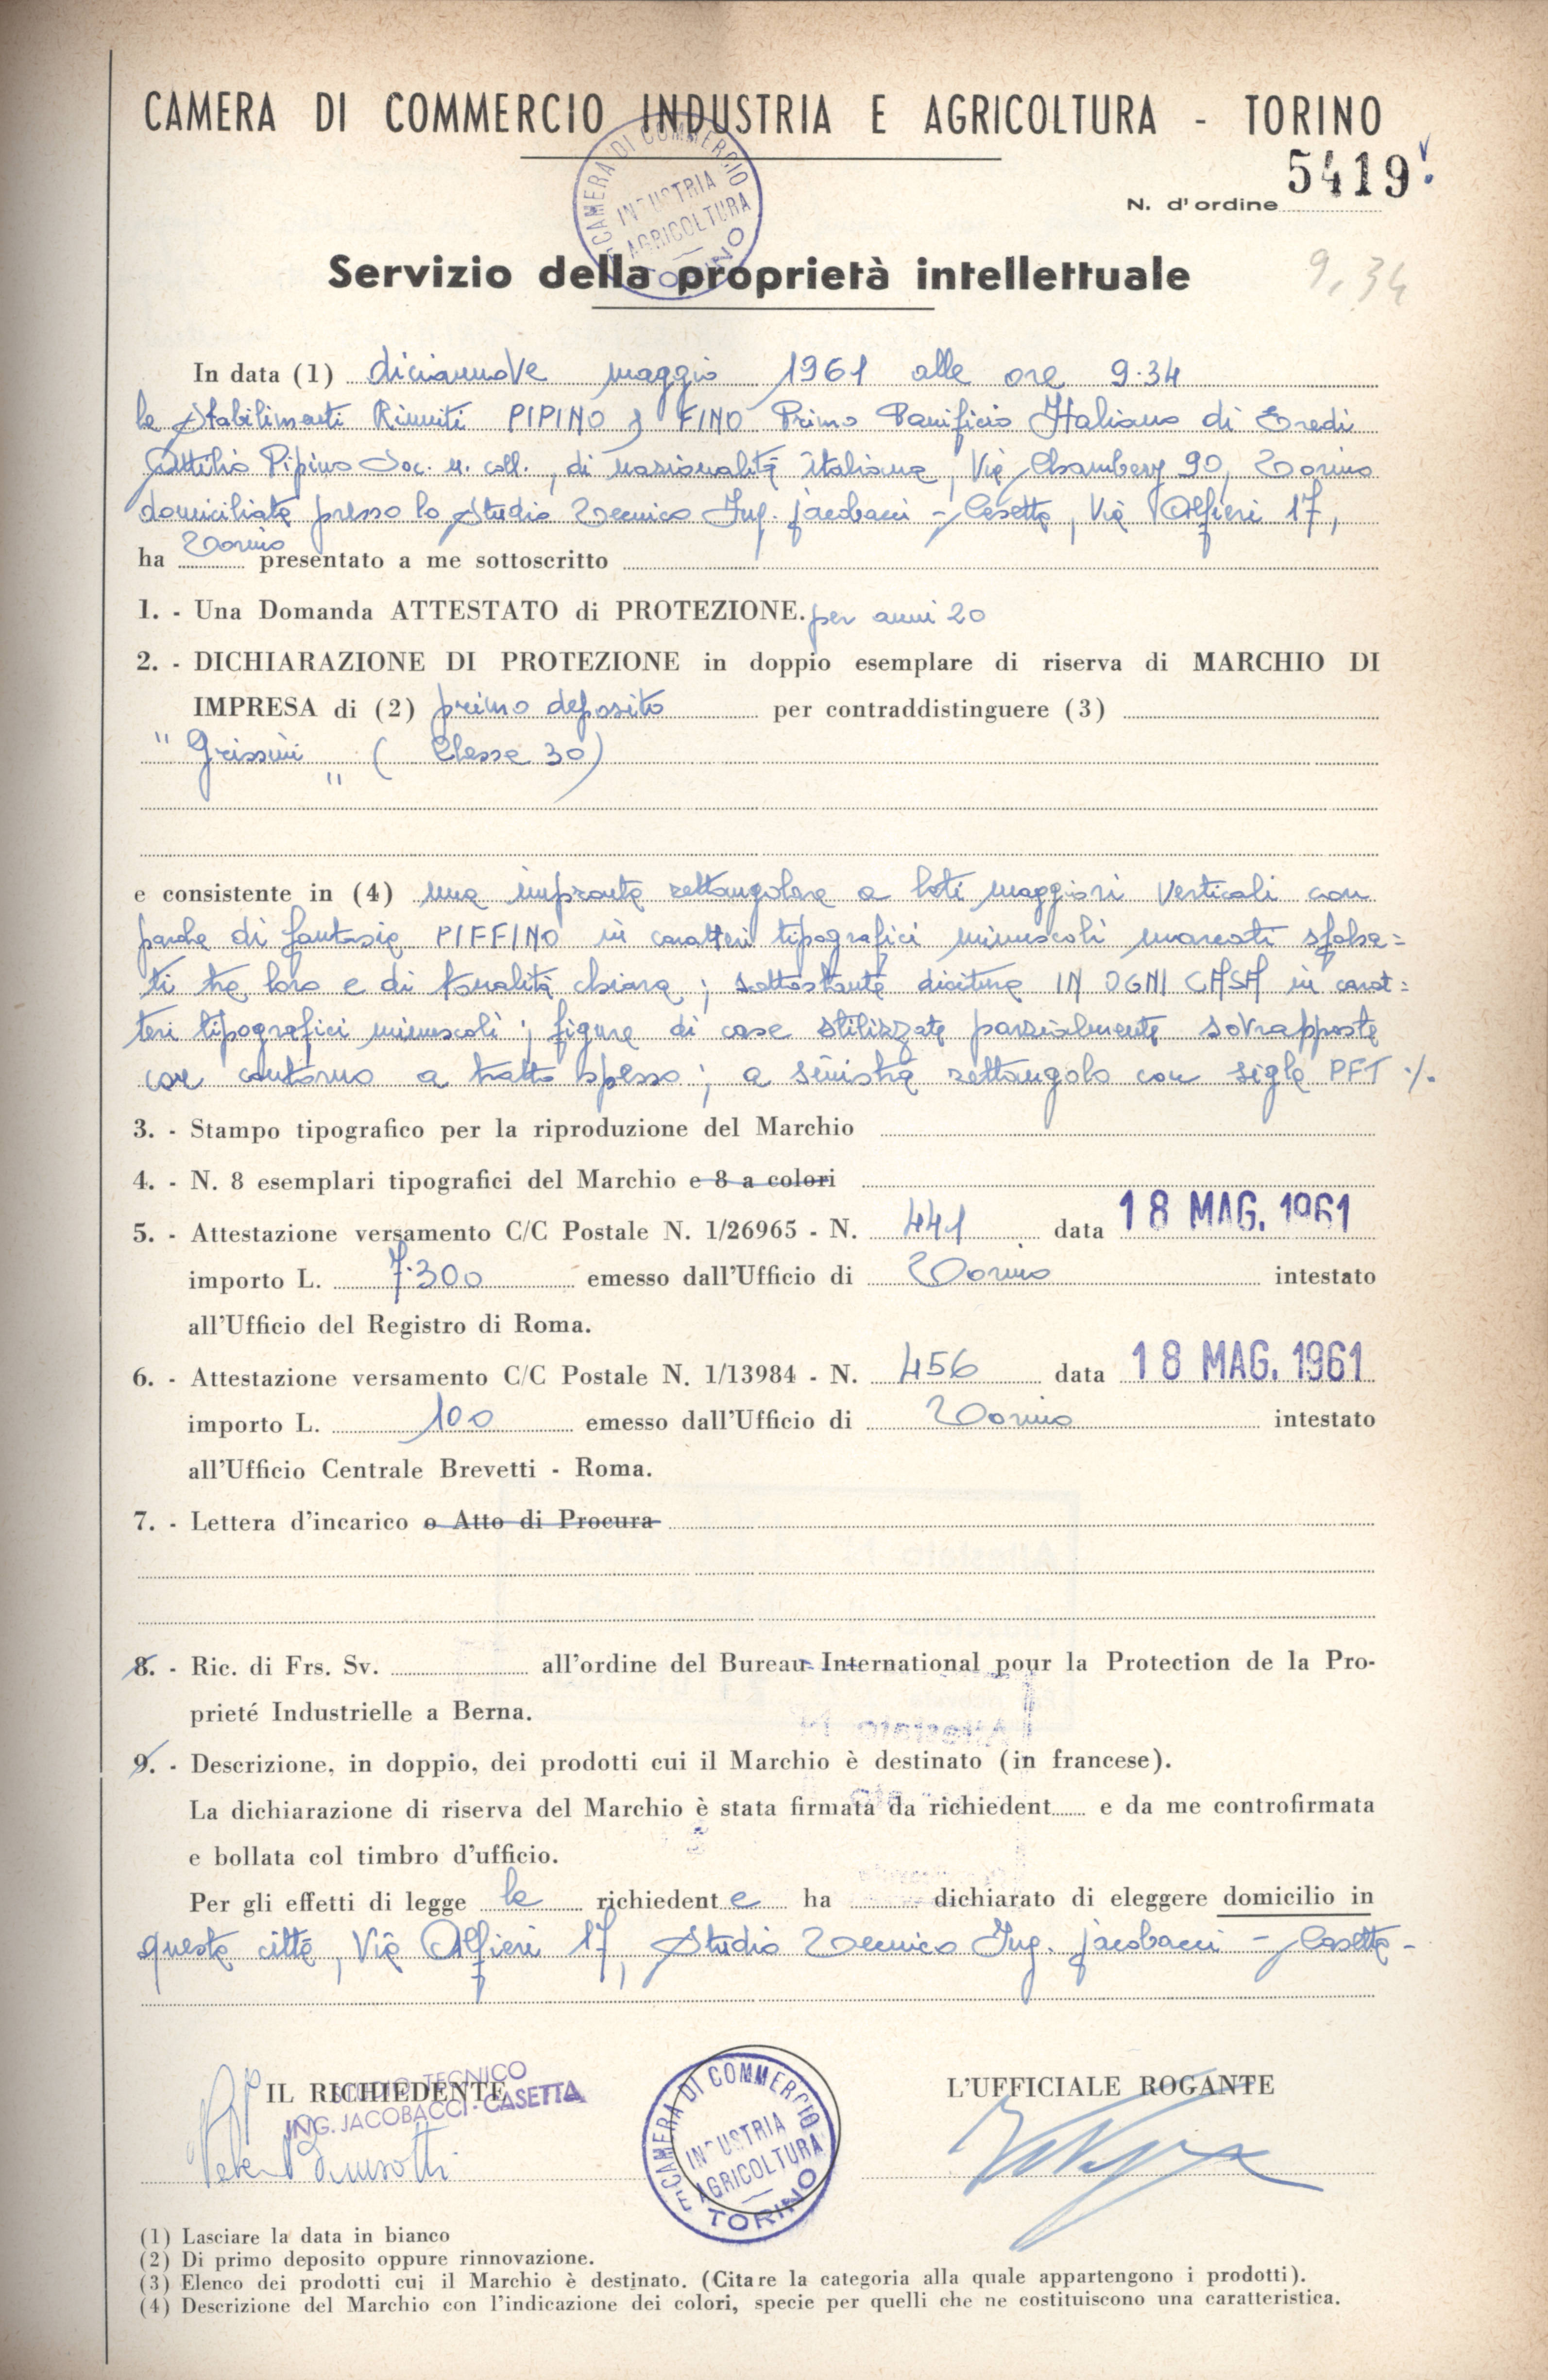 CAMERA DI COMMERCIO INDUSTRIA E AGRICOLTURA - TORINO
CAMERA DI COMMERCIO
INDUSTRIA
E AGRICOLTURA
TORINO
N. d'ordine 5419
Servizio della proprietà intellettuale
9,34
In data (1) diciannove maggio 1961 alle ore 9.34
la Stabilimenti Riuniti PIPINO & FINO Primo Panificio Italiano di Eredi
Attilio Pipino Soc. n. coll., di nazionalità italiana, Via Chambery 90, Torino
domiciliata presso lo Studio Tecnico Ing. Jacobacci - Casetta, Via Alfieri 17,
ha Torino presentato a me sottoscritto
1. - Una Domanda ATTESTATO di PROTEZIONE. per anni 20
2. - DICHIARAZIONE DI PROTEZIONE in doppio esemplare di riserva di MARCHIO DI
IMPRESA di (2) primo deposito per contraddistinguere (3)
" Grissini " ( Classe 30)
e consistente in (4) una impronta rettangolare a lati maggiori verticali con
parola di fantasia PIFFINO in caratteri tipografici minuscoli marcati sfalsa=
ti tra loro e di tonalità chiara; sottostante dicitura IN OGNI CASA in carat=
teri tipografici minuscoli; figura di case stilizzate parzialmente sovrapposte
con contorno a tratto spesso; a sinistra rettangolo con sigla PFT ./.
3. - Stampo tipografico per la riproduzione del Marchio
4. - N. 8 esemplari tipografici del Marchio e 8 a colori
5. - Attestazione versamento C/C Postale N. 1/26965 - N. 441 data 18 MAG. 1961
importo L. 7.300 emesso dall'Ufficio di Torino intestato
all'Ufficio del Registro di Roma.
6. - Attestazione versamento C/C Postale N. 1/13984 - N. 456 data 18 MAG. 1961
importo L. 100 emesso dall'Ufficio di Torino intestato
all'Ufficio Centrale Brevetti - Roma.
7. - Lettera d'incarico o Atto di Procura
8. - Ric. di Frs. Sv. all'ordine del Bureau International pour la Protection de la Pro-
prieté Industrielle a Berna.
9. - Descrizione, in doppio, dei prodotti cui il Marchio è destinato (in francese).
La dichiarazione di riserva del Marchio è stata firmata da richiedent e da me controfirmata
e bollata col timbro d'ufficio.
Per gli effetti di legge la richiedente ha dichiarato di eleggere domicilio in
questa città, Via Alfieri 17, Studio Tecnico Ing. Jacobacci - Casetta -
IL RICHIEDENTE
STUDIO TECNICO
ING. JACOBACCI - CASETTA
CAMERA DI COMMERCIO
INDUSTRIA
E AGRICOLTURA
TORINO
L'UFFICIALE ROGANTE
(1) Lasciare la data in bianco
(2) Di primo deposito oppure rinnovazione.
(3) Elenco dei prodotti cui il Marchio è destinato. (Citare la categoria alla quale appartengono i prodotti).
(4) Descrizione del Marchio con l'indicazione dei colori, specie per quelli che ne costituiscono una caratteristica.